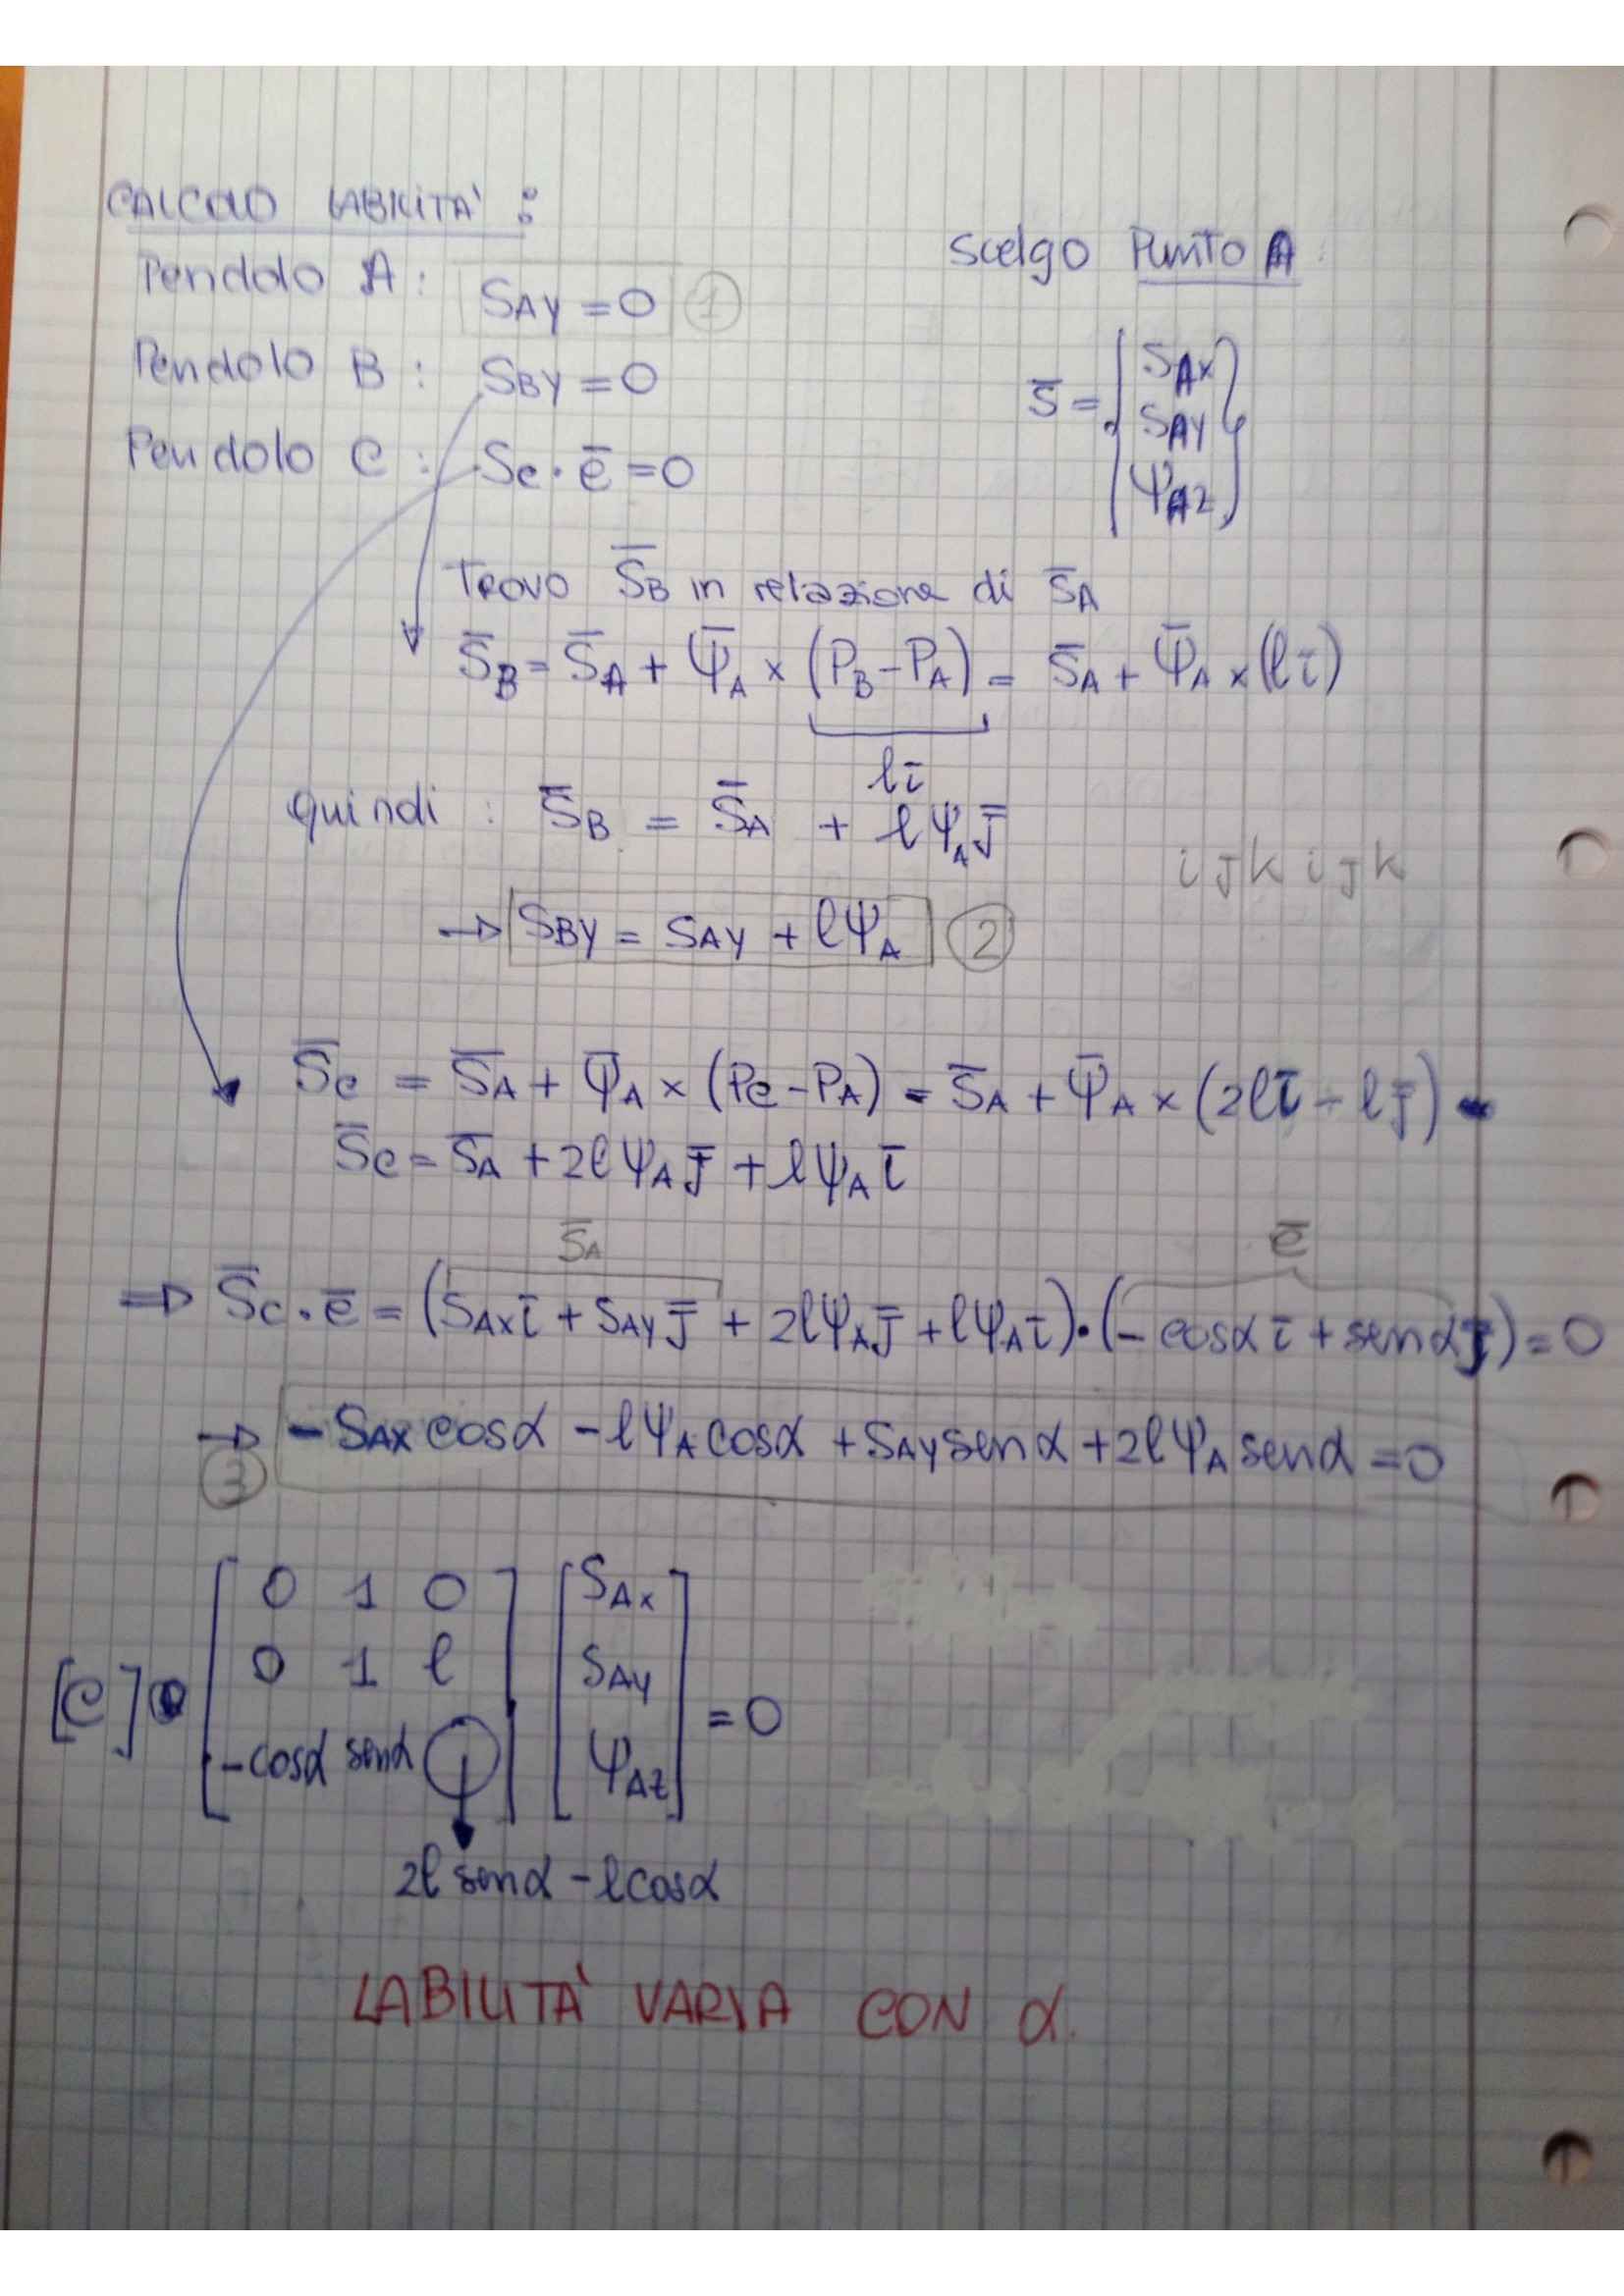 CALCOLO LABILITA' :
Scelgo Punto A :
Pendolo A : SAY = 0 ①
Pendolo B : SBY = 0
Pendolo C : Sc · e̅ = 0
S̅ = { SAx
SAY
ΨAz }
Trovo S̅B in relazione di S̅A
S̅B = S̅A + Ψ̅A × (PB - PA) = S̅A + Ψ̅A × (l i̅)
l i̅
quindi : S̅B = S̅A + l ΨA j̅
i j k i j k
→ SBY = SAY + l ΨA ②
S̅c = S̅A + Ψ̅A × (Pc - PA) = S̅A + Ψ̅A × (2l i̅ - l j̅)
S̅c = S̅A + 2l ΨA j̅ + l ΨA i̅
S̅A e̅
⇒ S̅c · e̅ = (SAx i̅ + SAY j̅ + 2l ΨA j̅ + l ΨA i̅) · (- cosα i̅ + senα j̅) = 0
→ - SAX cosα - l ΨA cosα + SAY senα + 2l ΨA senα = 0
③
[C] [ 0 1 0 ] [ SAx ]
[ 0 1 l ] [ SAY ] = 0
[ -cosα senα ] [ ΨAz ]
2l senα - l cosα
LABILITA' VARIA CON α.